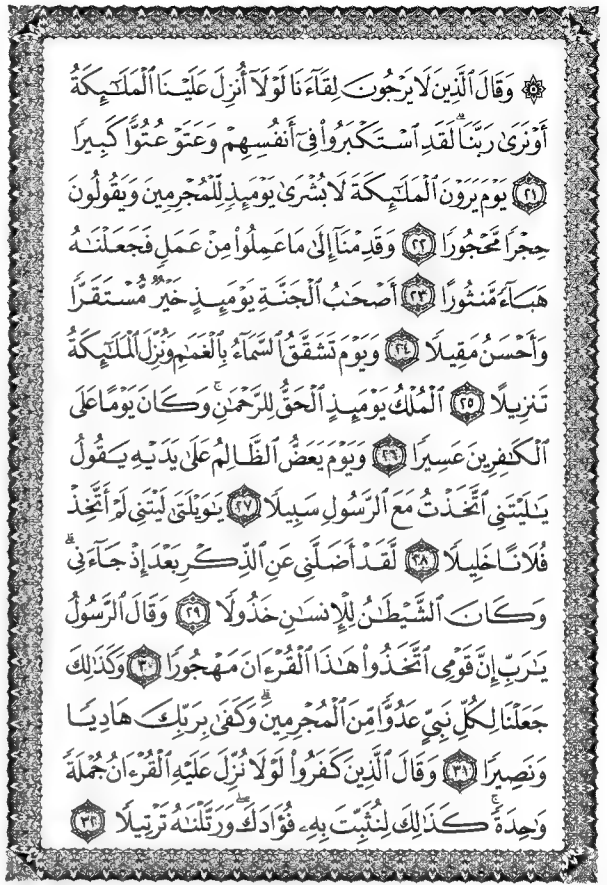 ۞ وَقَالَ ٱلَّذِينَ لَا يَرْجُونَ لِقَآءَنَا لَوْلَآ أُنزِلَ عَلَيْنَا ٱلْمَلَـٰٓئِكَةُ
أَوْ نَرَىٰ رَبَّنَا ۗ لَقَدِ ٱسْتَكْبَرُوا۟ فِىٓ أَنفُسِهِمْ وَعَتَوْ عُتُوًّا كَبِيرًا
٢١ يَوْمَ يَرَوْنَ ٱلْمَلَـٰٓئِكَةَ لَا بُشْرَىٰ يَوْمَئِذٍ لِّلْمُجْرِمِينَ وَيَقُولُونَ
حِجْرًا مَّحْجُورًا ٢٢ وَقَدِمْنَآ إِلَىٰ مَا عَمِلُوا۟ مِنْ عَمَلٍ فَجَعَلْنَـٰهُ
هَبَآءً مَّنثُورًا ٢٣ أَصْحَـٰبُ ٱلْجَنَّةِ يَوْمَئِذٍ خَيْرٌ مُّسْتَقَرًّا
وَأَحْسَنُ مَقِيلًا ٢٤ وَيَوْمَ تَشَقَّقُ ٱلسَّمَآءُ بِٱلْغَمَـٰمِ وَنُزِّلَ ٱلْمَلَـٰٓئِكَةُ
تَنزِيلًا ٢٥ ٱلْمُلْكُ يَوْمَئِذٍ ٱلْحَقُّ لِلرَّحْمَـٰنِ ۚ وَكَانَ يَوْمًا عَلَى
ٱلْكَـٰفِرِينَ عَسِيرًا ٢٦ وَيَوْمَ يَعَضُّ ٱلظَّالِمُ عَلَىٰ يَدَيْهِ يَقُولُ
يَـٰلَيْتَنِى ٱتَّخَذْتُ مَعَ ٱلرَّسُولِ سَبِيلًا ٢٧ يَـٰوَيْلَتَىٰ لَيْتَنِى لَمْ أَتَّخِذْ
فُلَانًا خَلِيلًا ٢٨ لَّقَدْ أَضَلَّنِى عَنِ ٱلذِّكْرِ بَعْدَ إِذْ جَآءَنِى ۗ
وَكَانَ ٱلشَّيْطَـٰنُ لِلْإِنسَـٰنِ خَذُولًا ٢٩ وَقَالَ ٱلرَّسُولُ
يَـٰرَبِّ إِنَّ قَوْمِى ٱتَّخَذُوا۟ هَـٰذَا ٱلْقُرْءَانَ مَهْجُورًا ٣٠ وَكَذَٰلِكَ
جَعَلْنَا لِكُلِّ نَبِىٍّ عَدُوًّا مِّنَ ٱلْمُجْرِمِينَ ۗ وَكَفَىٰ بِرَبِّكَ هَادِيًا
وَنَصِيرًا ٣١ وَقَالَ ٱلَّذِينَ كَفَرُوا۟ لَوْلَا نُزِّلَ عَلَيْهِ ٱلْقُرْءَانُ جُمْلَةً
وَٰحِدَةً ۚ كَذَٰلِكَ لِنُثَبِّتَ بِهِۦ فُؤَادَكَ ۖ وَرَتَّلْنَـٰهُ تَرْتِيلًا ٣٢